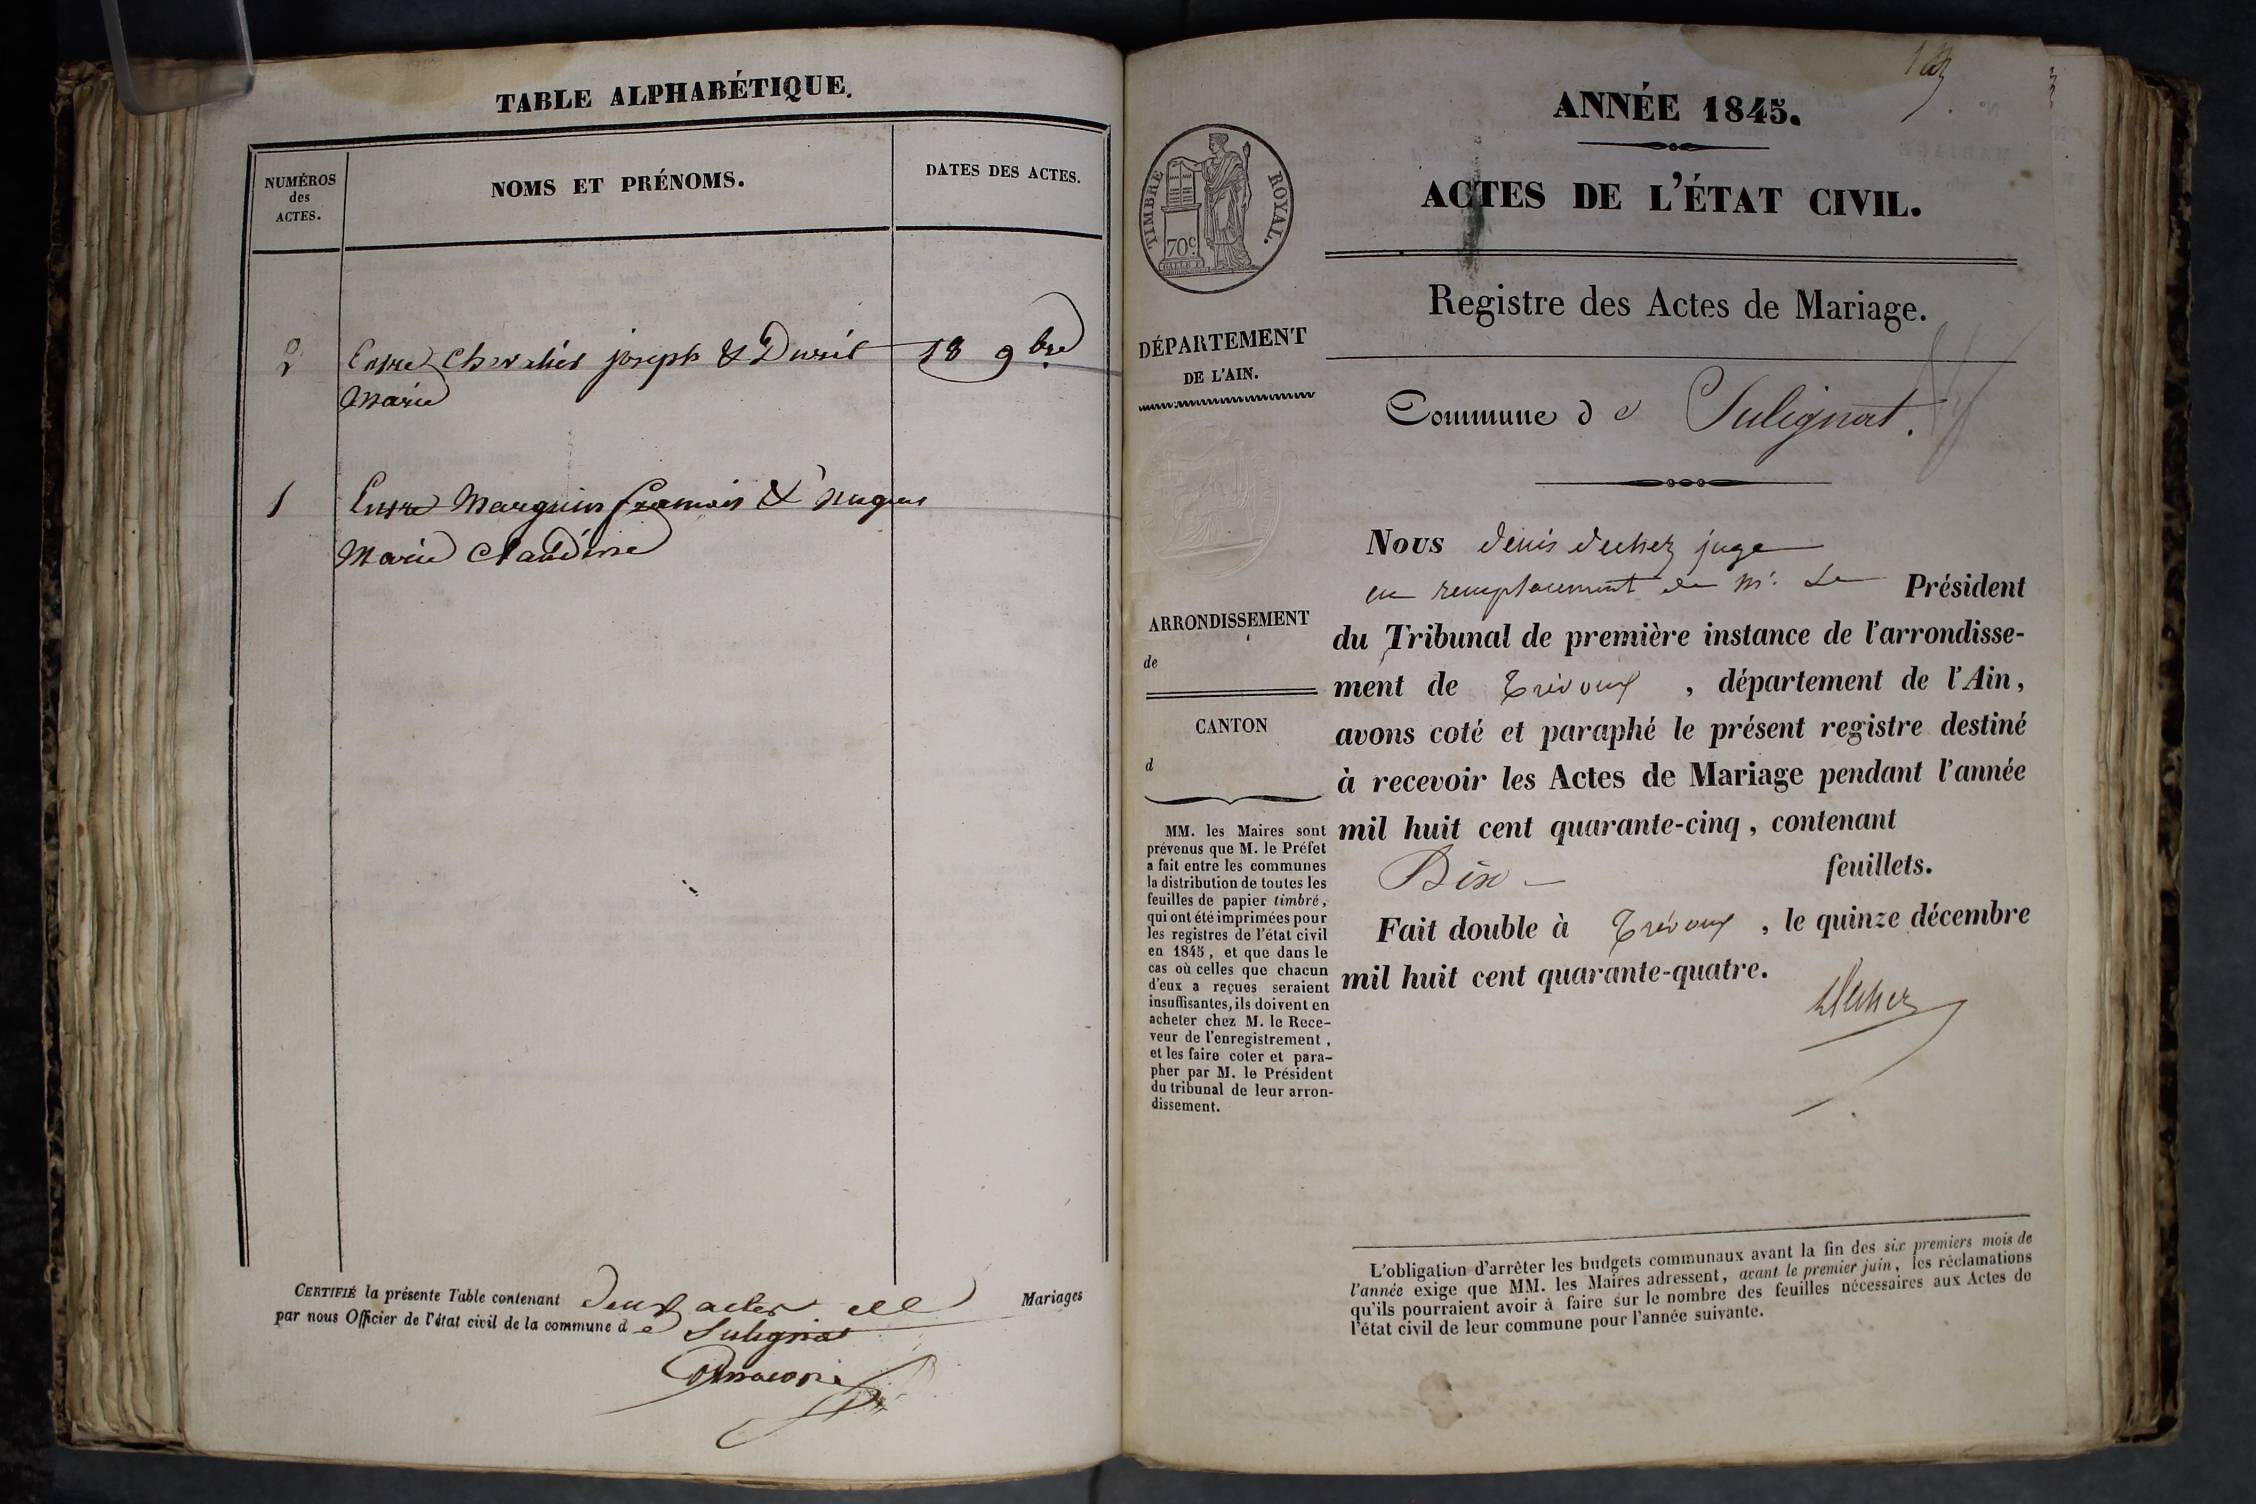 TABLE ALPHABÉTIQUE.
NUMÉROS
des
ACTES.
NOMS ET PRÉNOMS.
DATES DES ACTES.
2 Entre Chevalier joseph & Duvril 18 9bre
Marie
1 Entre Marguin françois &
Marie Claudine
CERTIFIÉ la présente Table contenant Deux actes de Mariages
par nous Officier de l'état civil de la commune d e Sulignat
ANNÉE 1845.
ACTES DE L'ÉTAT CIVIL.
TIMBRE ROYAL.
70c
Registre des Actes de Mariage.
DÉPARTEMENT
DE L'AIN.
Commune d e Sulignat.
ARRONDISSEMENT
de
CANTON
d
MM. les Maires sont
prévenus que M. le Préfet
a fait entre les communes
la distribution de toutes les
feuilles de papier timbré,
qui ont été imprimées pour
les registres de l'état civil
en 1845, et que dans le
cas où celles que chacun
d'eux a reçues seraient
insuffisantes, ils doivent en
acheter chez M. le Rece-
veur de l'enregistrement,
et les faire coter et para-
pher par M. le Président
du tribunal de leur arron-
dissement.
Nous denis dechez juge
en remplacement de Mr. Le Président
du Tribunal de première instance de l'arrondisse-
ment de Trévoux, département de l'Ain,
avons coté et paraphé le présent registre destiné
à recevoir les Actes de Mariage pendant l'année
mil huit cent quarante-cinq, contenant
Dix feuillets.
Fait double à Trévoux, le quinze décembre
mil huit cent quarante-quatre.
Dechez
L'obligation d'arrêter les budgets communaux avant la fin des six premiers mois de
l'année exige que MM. les Maires adressent, avant le premier juin, les réclamations
qu'ils pourraient avoir à faire sur le nombre des feuilles nécessaires aux Actes de
l'état civil de leur commune pour l'année suivante.